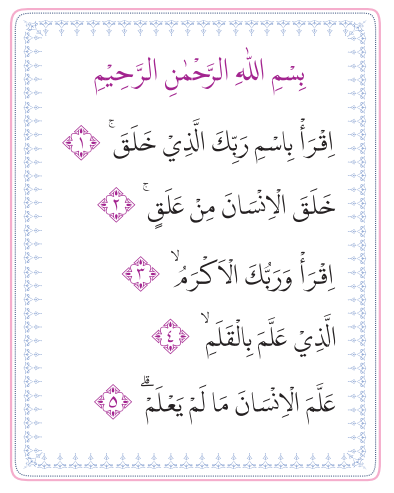 بِسْمِ اللّٰهِ الرَّحْمٰنِ الرَّحِيْمِ
اِقْرَأْ بِاسْمِ رَبِّكَ الَّذِيْ خَلَقَ ۚ ١
خَلَقَ الْاِنْسَانَ مِنْ عَلَقٍ ۚ ٢
اِقْرَأْ وَرَبُّكَ الْاَكْرَمُ ۙ ٣
الَّذِيْ عَلَّمَ بِالْقَلَمِ ۙ ٤
عَلَّمَ الْاِنْسَانَ مَا لَمْ يَعْلَمْ ۗ ٥